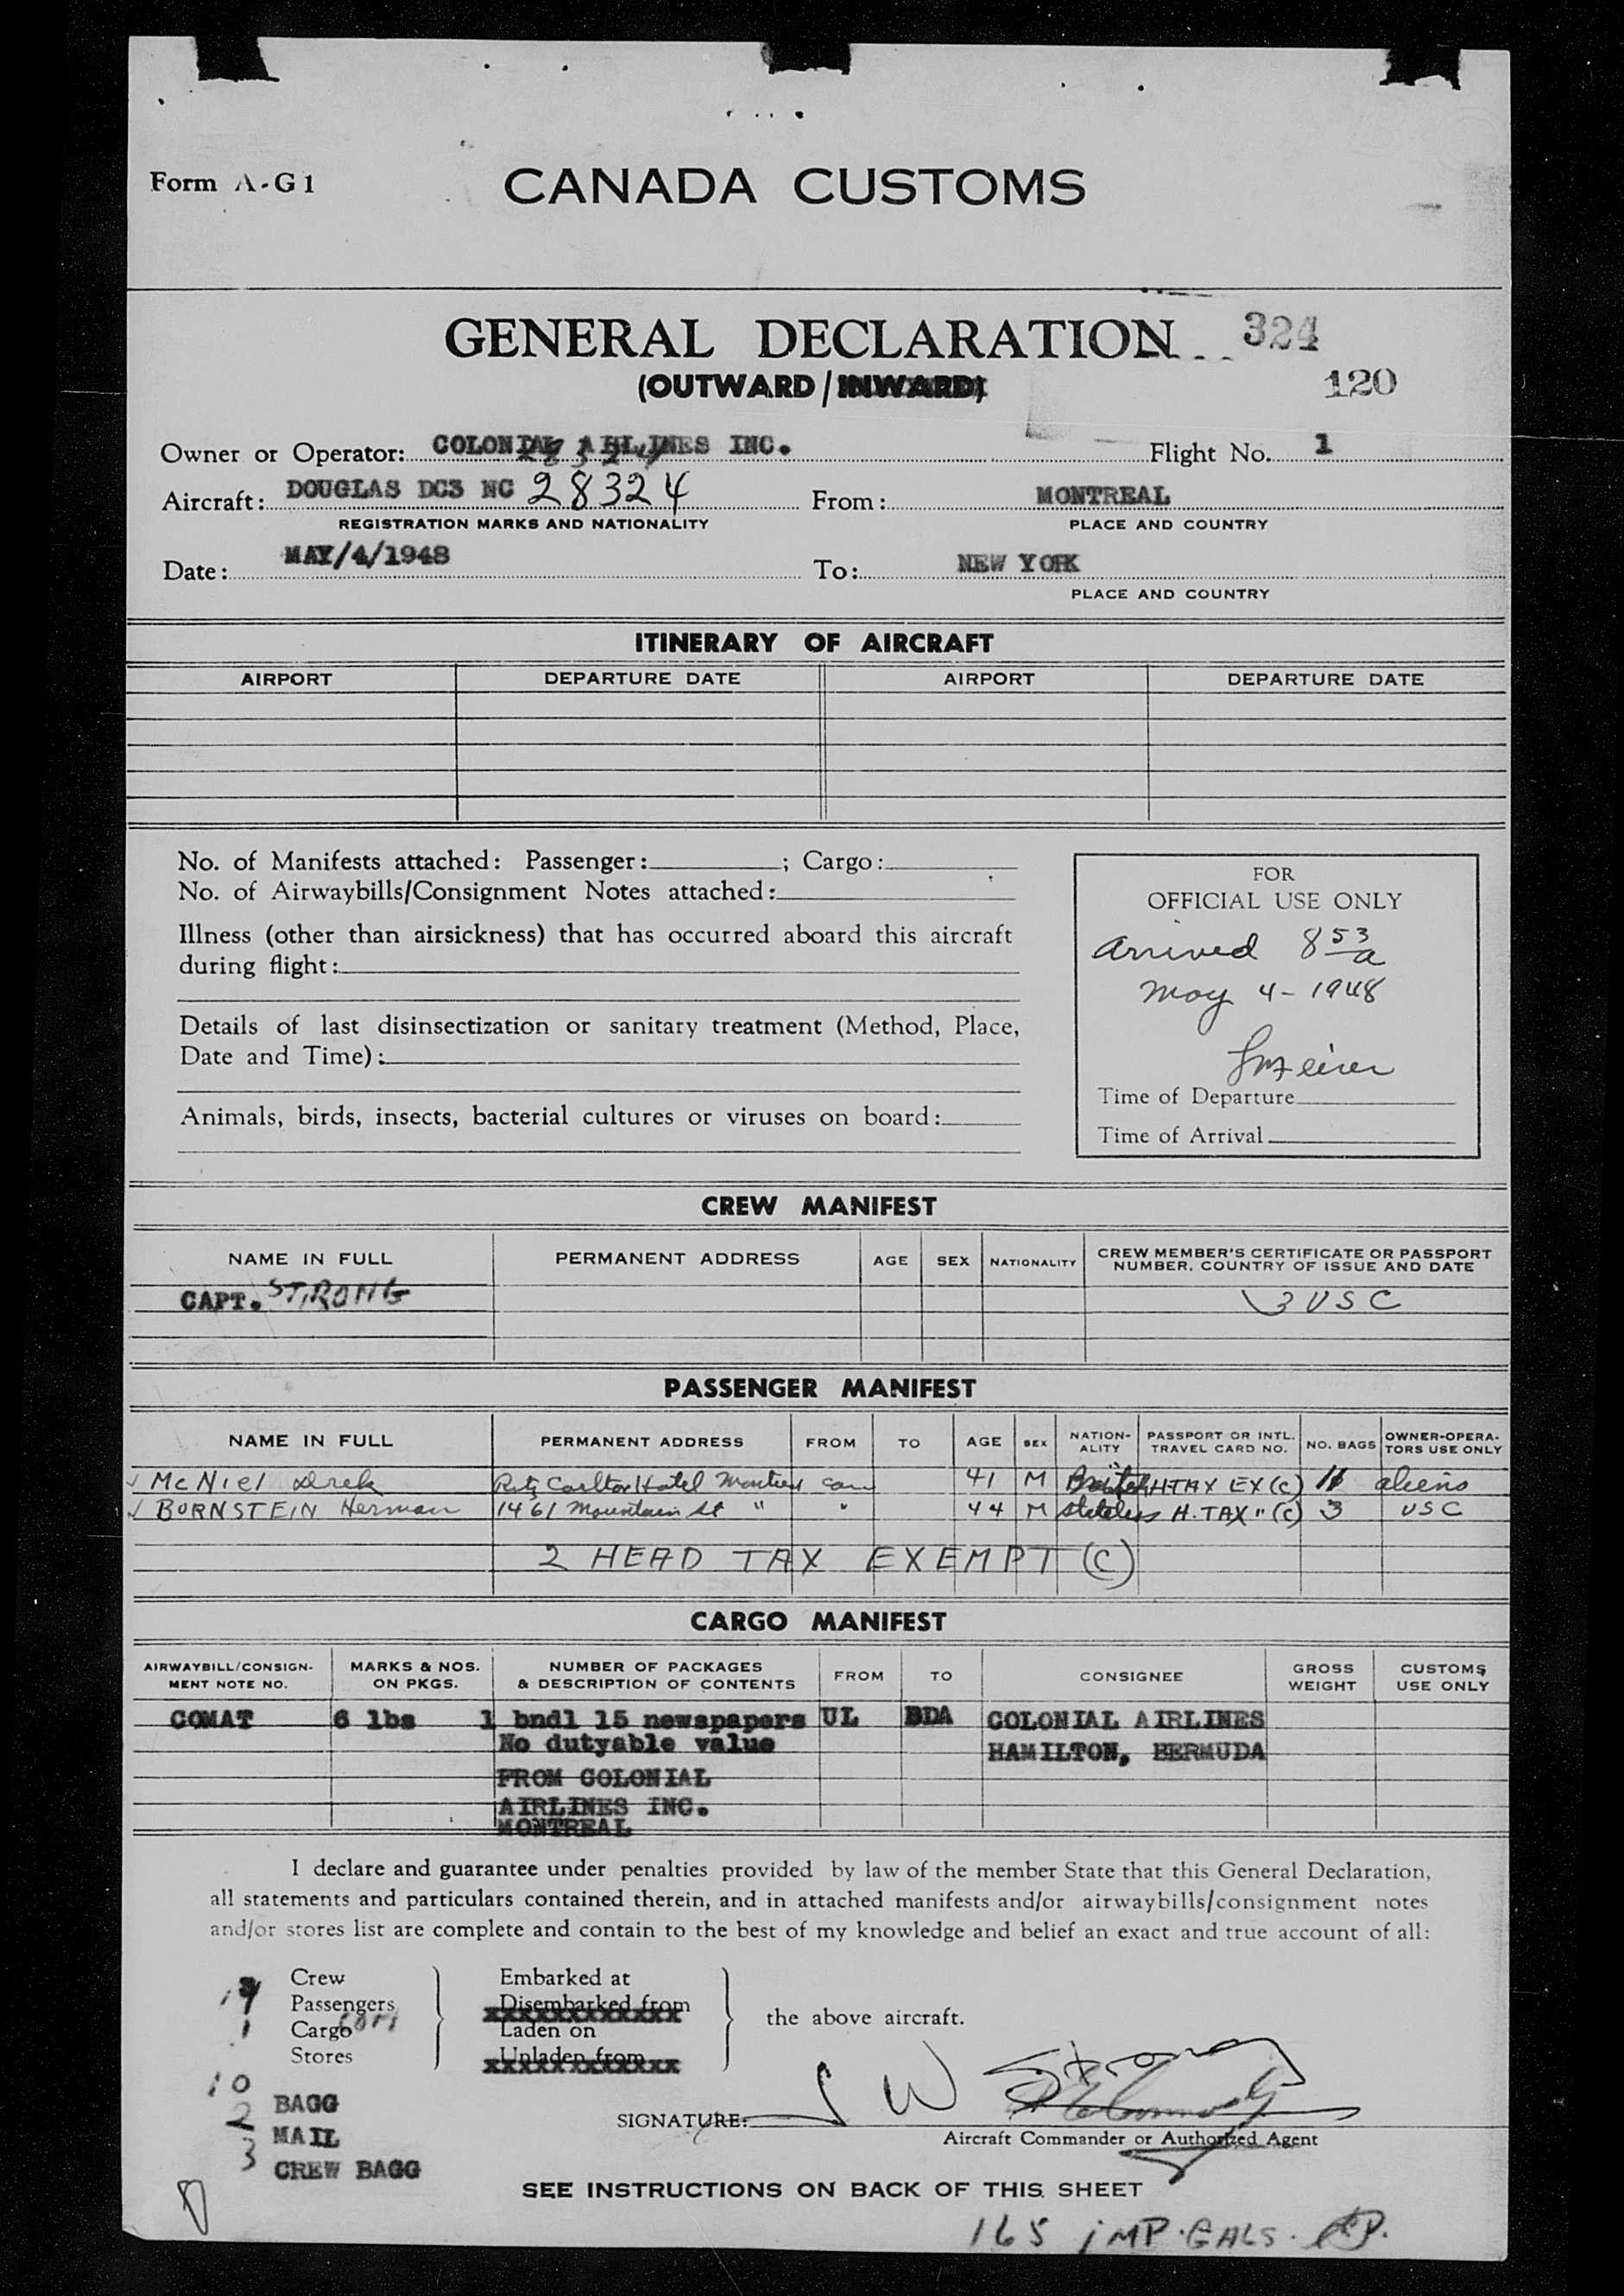 Form A-G1
CANADA CUSTOMS
GENERAL DECLARATION 324
(OUTWARD/INWARD) 120
Owner or Operator: COLONIAL AIRLINES INC. Flight No. 1
Aircraft: DOUGLAS DC3 NC 28324 From: MONTREAL
REGISTRATION MARKS AND NATIONALITY PLACE AND COUNTRY
Date: MAY/4/1948 To: NEW YORK
PLACE AND COUNTRY
ITINERARY OF AIRCRAFT
AIRPORT DEPARTURE DATE AIRPORT DEPARTURE DATE
No. of Manifests attached: Passenger: ; Cargo:
No. of Airwaybills/Consignment Notes attached:
Illness (other than airsickness) that has occurred aboard this aircraft
during flight:
Details of last disinsectization or sanitary treatment (Method, Place,
Date and Time):
Animals, birds, insects, bacterial cultures or viruses on board:
FOR
OFFICIAL USE ONLY
Arrived 8 53 a
May 4 - 1948
Time of Departure
Time of Arrival
CREW MANIFEST
NAME IN FULL PERMANENT ADDRESS AGE SEX NATIONALITY CREW MEMBER'S CERTIFICATE OR PASSPORT
NUMBER, COUNTRY OF ISSUE AND DATE
CAPT. STRONG 3 USC
PASSENGER MANIFEST
NAME IN FULL PERMANENT ADDRESS FROM TO AGE SEX NATION-
ALITY PASSPORT OR INTL.
TRAVEL CARD NO. NO. BAGS OWNER-OPERA-
TORS USE ONLY
McNiel Derek Ritz Carlton Hotel Montreal Can 41 M British H-TAX EX (C) aliens
BORNSTEIN Herman 1461 Mountain St " " 44 M Stateless H. TAX " (C) 3 USC
2 HEAD TAX EXEMPT (C)
CARGO MANIFEST
AIRWAYBILL/CONSIGN-
MENT NOTE NO. MARKS & NOS.
ON PKGS. NUMBER OF PACKAGES
& DESCRIPTION OF CONTENTS FROM TO CONSIGNEE GROSS
WEIGHT CUSTOMS
USE ONLY
COMAT 6 lbs 1 bndl 15 newspapers UL BDA COLONIAL AIRLINES
No dutyable value HAMILTON, BERMUDA
FROM COLONIAL
AIRLINES INC.
MONTREAL
I declare and guarantee under penalties provided by law of the member State that this General Declaration,
all statements and particulars contained therein, and in attached manifests and/or airwaybills/consignment notes
and/or stores list are complete and contain to the best of my knowledge and belief an exact and true account of all:
Crew Embarked at
Passengers Disembarked from
1 Cargo Laden on
Stores Unladen from
the above aircraft.
10 BAGG
2 MAIL
3 CREW BAGG
SIGNATURE: S W Strong
Aircraft Commander or Authorized Agent
SEE INSTRUCTIONS ON BACK OF THIS SHEET
165 IMP. GALS.